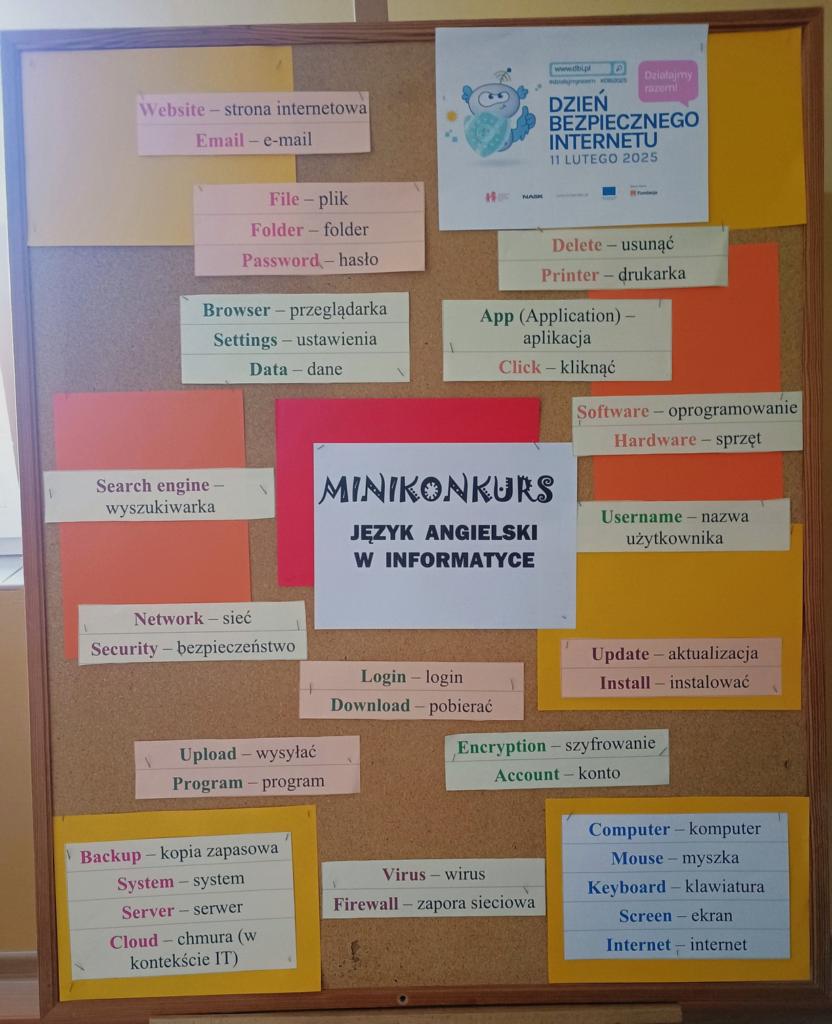 Website – strona internetowa
Email – e-mail
www.dbi.pl
#DBI2025
Działajmy
razem!
DZIEŃ
BEZPIECZNEGO
INTERNETU
11 LUTEGO 2025
NASK
File – plik
Folder – folder
Password – hasło
Delete – usunąć
Printer – drukarka
Browser – przeglądarka
Settings – ustawienia
Data – dane
App (Application) –
aplikacja
Click – kliknąć
Software – oprogramowanie
Hardware – sprzęt
Search engine –
wyszukiwarka
MINIKONKURS
JĘZYK ANGIELSKI
W INFORMATYCE
Username – nazwa
użytkownika
Network – sieć
Security – bezpieczeństwo
Update – aktualizacja
Install – instalować
Login – login
Download – pobierać
Upload – wysyłać
Program – program
Encryption – szyfrowanie
Account – konto
Backup – kopia zapasowa
System – system
Server – serwer
Cloud – chmura (w
kontekście IT)
Virus – wirus
Firewall – zapora sieciowa
Computer – komputer
Mouse – myszka
Keyboard – klawiatura
Screen – ekran
Internet – internet